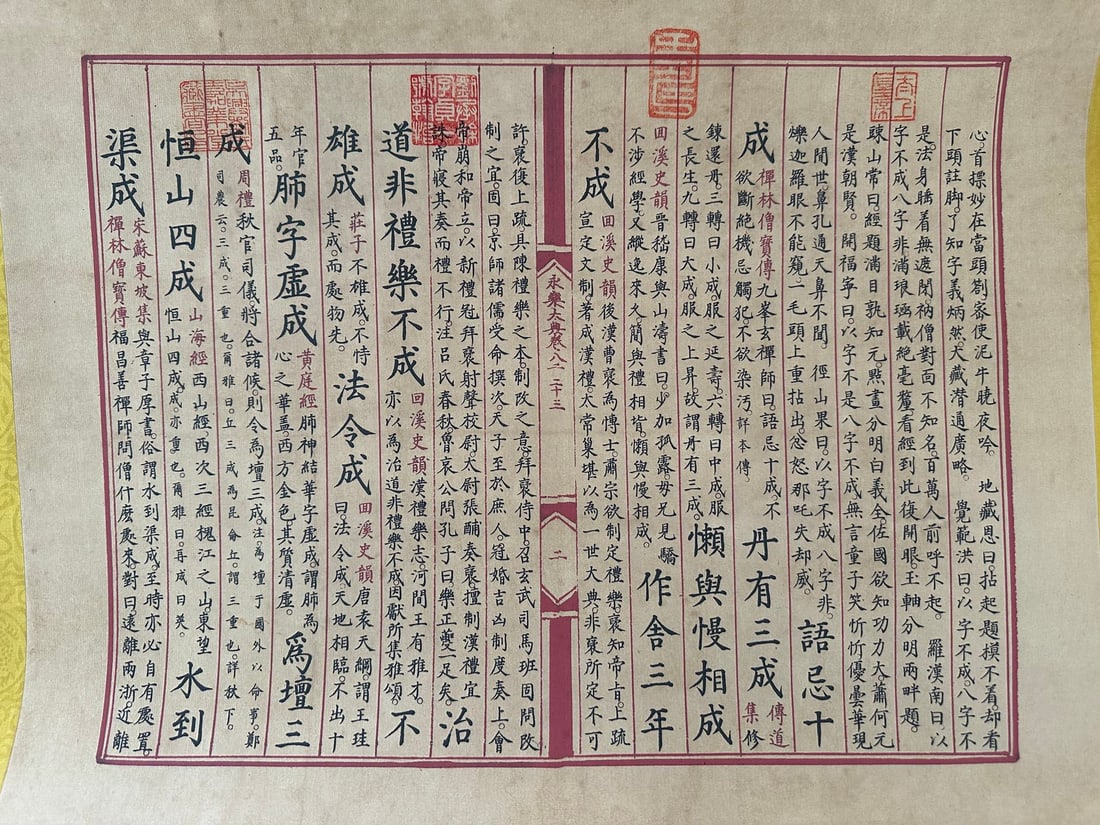 心。首摽妙在當頭劄審使泥牛曉夜吟。 地藏恩曰。拈起題摸不着。却看
下頭註脚。了知字義炳然。大藏潛通廣略。 覺範洪曰。以字不成。八字不
是。法身睹着無遮閉衲僧對面不知名。百萬人前呼不起。 羅漢南曰以
字不成八字非滿琅函載絶毫釐看經到此復開眼。玉軸分明兩畔題。
踈山常曰經題滿目孰知元。點畫分明白義全佐國欲知功力大。蕭何元
是漢朝賢。 開福寜曰。以字不是八字不成。無言童子笑忻忻優曇華現
人間世。鼻孔通天鼻不聞 徑山杲曰。以字不成八字非。
爍迦羅眼不能窺。一毛頭上重拈出。忿怒那吒失却威。
語忌十
成
禪林僧寶傳九峯玄禪師曰。語忌十成。不
欲斷絶機忌觸犯。不欲染汚詳本傳。
丹有三成
傳道
集修
鍊還丹。三轉曰小成。服之延壽。六轉曰中成。服
之長生。九轉曰大成。服之上昇故謂丹有三成。
懶與慢相成
回溪史韻晉嵇康與山濤書曰。少加孤露。母兄見驕
不涉經學。又縱逸來久簡與禮相背。懶與慢相成。
作舍三年
不成
回溪史韻後漢曹褒為博士。肅宗欲制定禮樂。褒知帝㫖。上疏
宣定文制。著成漢禮。太常巢堪以為一世大典。非褒所定不可
永樂大典卷八千二十三
二
許。褒復上疏具陳禮樂之本。制改之意。拜褒侍中召玄武司馬班固問改
制之宜。固曰。京師諸儒受命撰次。天子至於庶人。冠婚吉凶制度奏上。會
帝崩和帝立。以新禮冠拜褒射聲校尉。太尉張酺奏褒。擅制漢禮宜
誅。帝寢其奏而禮不行。注吕氏春秋魯哀公問孔子曰。樂正夔一足矣。
治
道非禮樂不成
回溪史韻漢禮樂志。河間王有雅才。
亦以為治道非禮樂不成。因獻所集雅頌。
不
雄成
莊子不雄成。不恃
其成。而處物先。
法令成
回溪史韻唐袁天綱。謂王珪
曰。法令成。天地相臨。不出十
年官
五品。
肺字虚成
黄庭經肺神結華字虚成。謂肺為
心之華蓋。西方金色。其質清虚。
為壇三
成
周禮秋官司儀將合諸侯。則令為壇三成。注。為壇于國外以命事。鄭
司農云。三成。三重也。爾雅曰。丘三成為昆侖丘。謂三重也。詳秋下。
恒山四成
山海經西山經西次三經槐江之山。東望
恒山四成。成。亦重也。爾雅曰。再成曰英。
水到
渠成
宋蘇東坡集與章子厚書。俗謂水到渠成。至時亦必自有處置。
禪林僧寶傳福昌善禪師問僧什麽處來。對曰遠離兩浙。近離